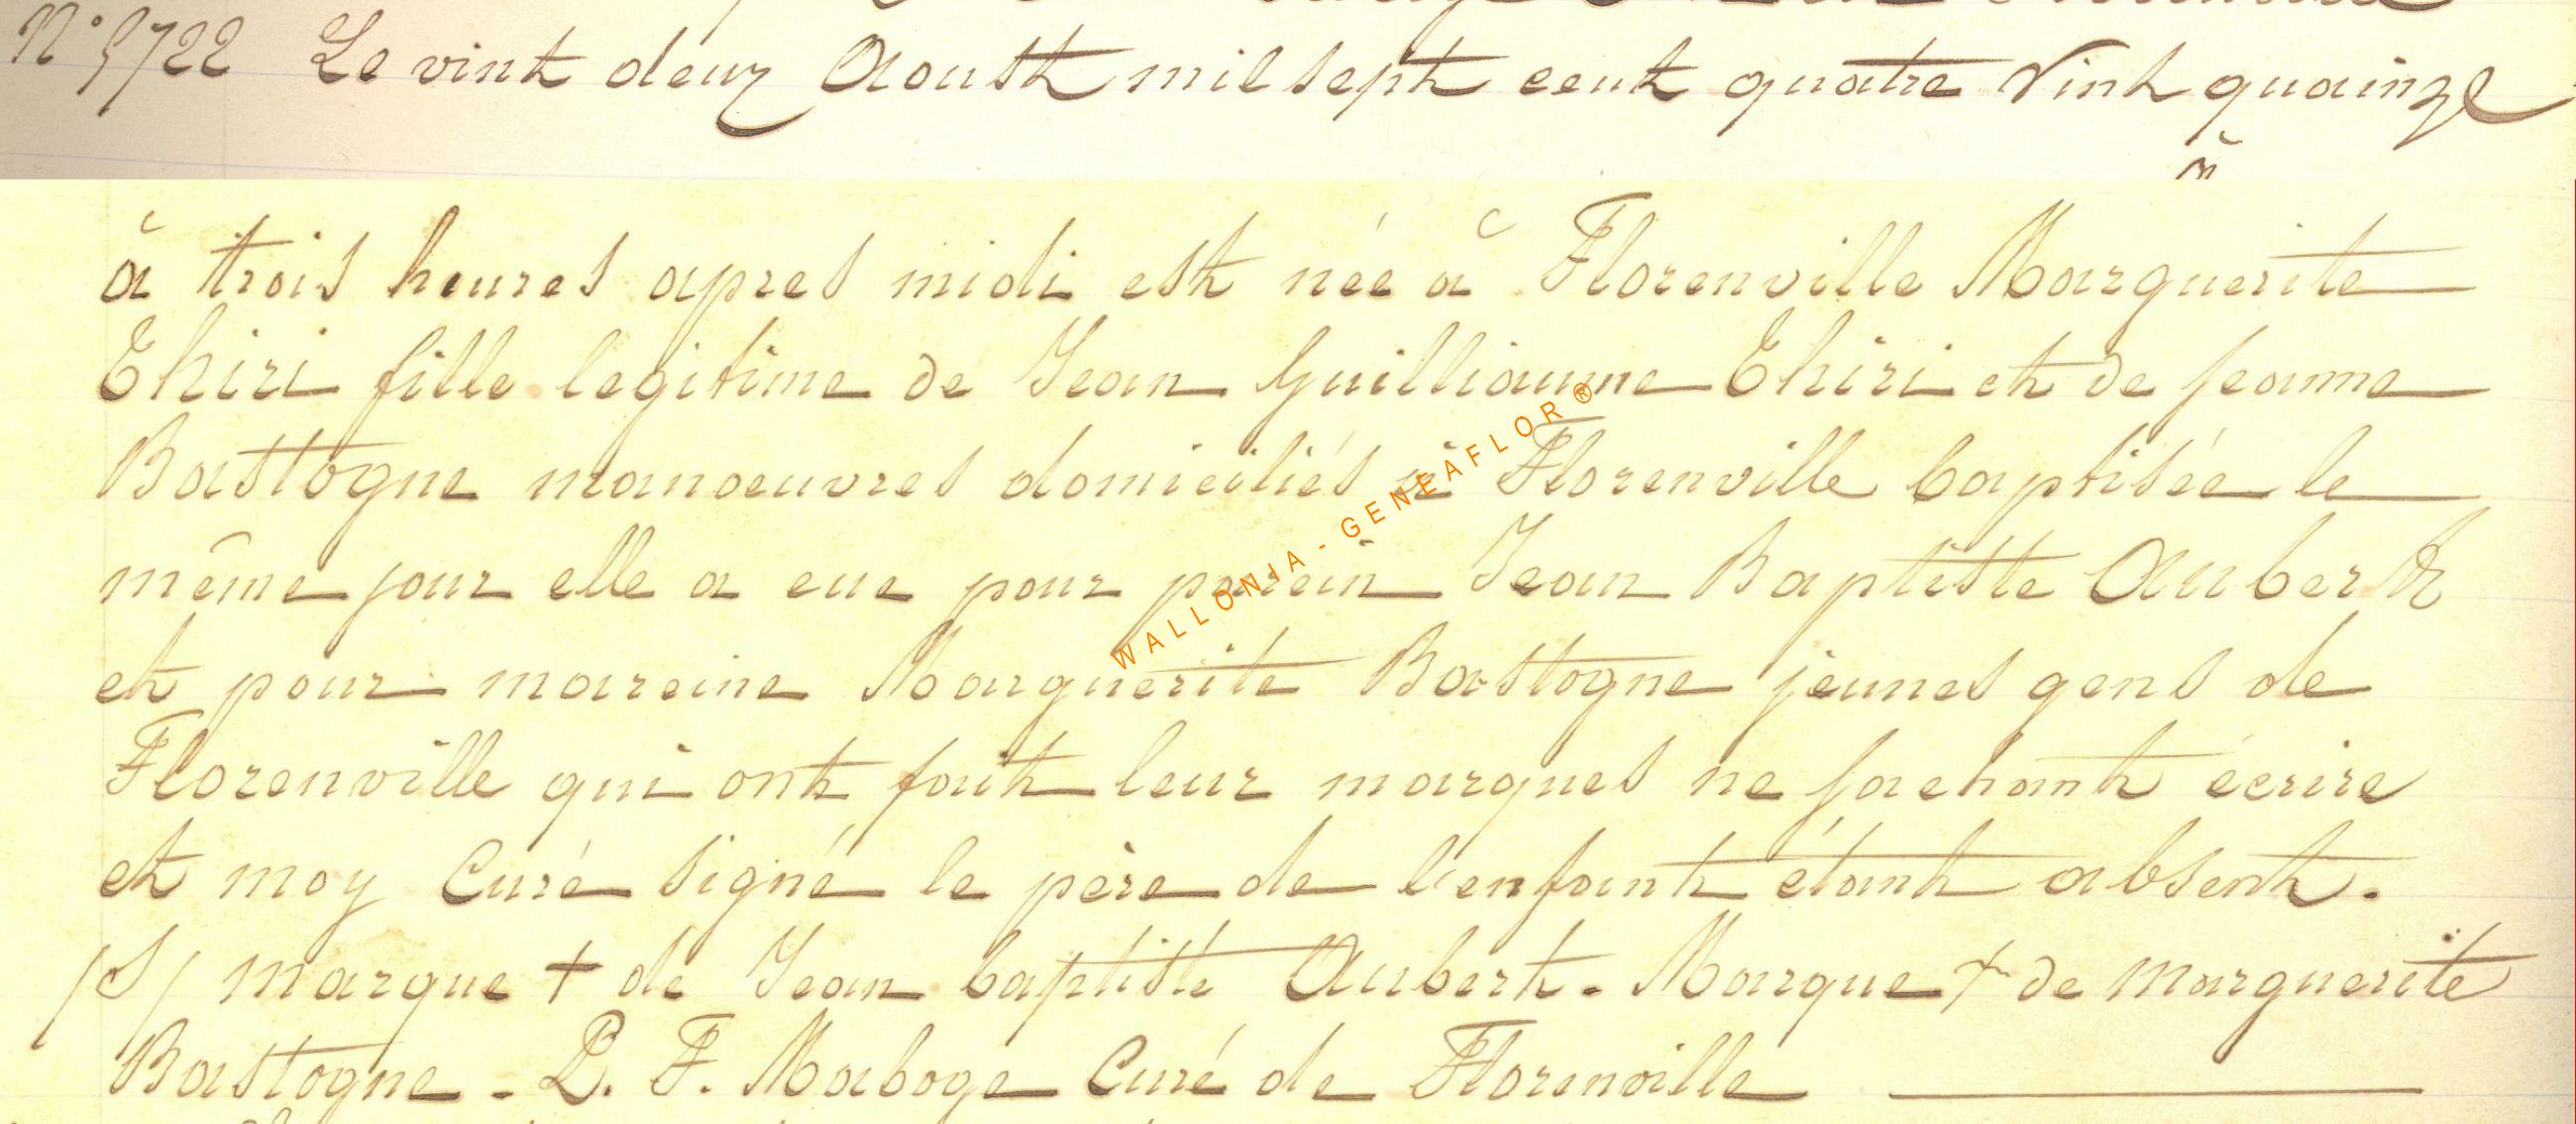 N° 5722 Le vint deux Aoust mil sept cent quatre vint quainze
à trois heures apres midi est née à Florenville Marguerite
Thiri fille legitime de Jean Guilliaume Thiri et de jeanne
Bastogne manoeuvres domiciliés à Florenville baptisée le
même jour elle a eue pour parein Jean Baptiste Aubert
et pour mareine Marguerite Bastogne jeunes gens de
Florenville qui ont fait leur marques ne sachant écrire
et moy Curé signé le père de l'enfant étant absent.
/S/ marque + de Jean baptiste Aubert. Marque + de marguerite
Bastogne - P. F. Maboge Curé de Florenville
WALLONIA - GENEAFLOR ®